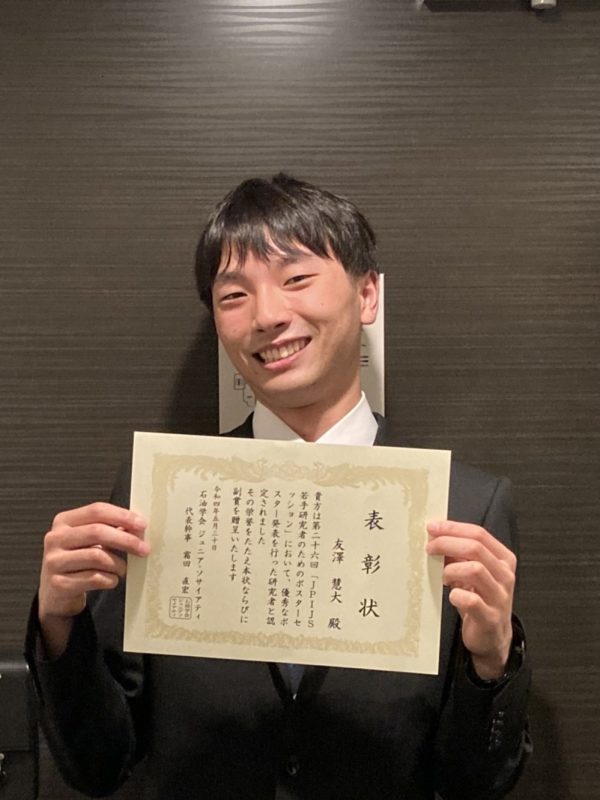 表彰状
友澤 慧大 殿
貴方は第二十六回「JPIJS
若手研究者のためのポスターセ
ッション」において、優秀なポ
スター発表を行った研究者と認
定されました
その学誉をたたえ本状ならびに
副賞を贈呈いたします
令和四年五月三十日
石油学会 ジュニア・ソサイアティ
代表幹事 霜田 直宏